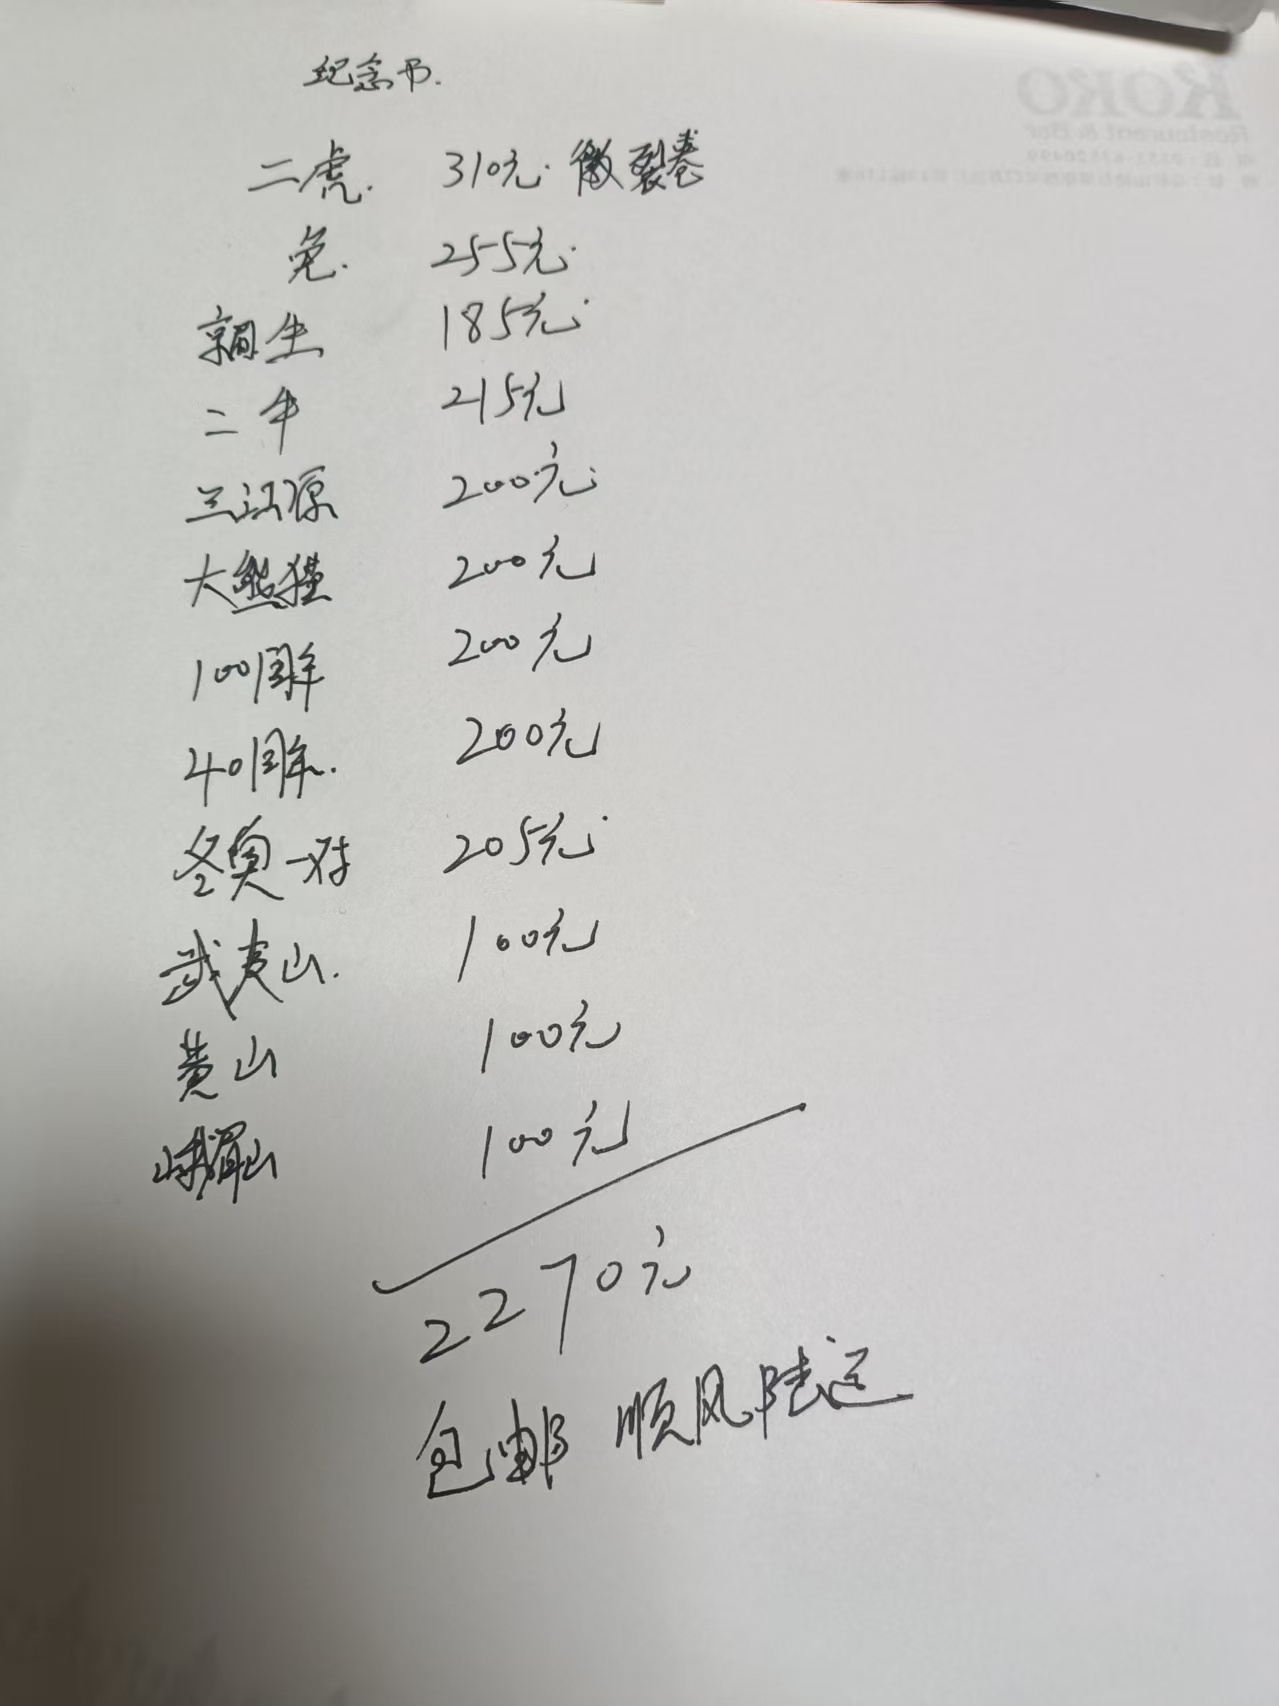 纪念币.
二虎. 310元. 微裂卷
兔. 255元.
185元.
二牛 215元
三江源 200元.
大熊猫 200元
100周年 200元
40周年. 200元
冬奥一对 205元.
武夷山. 100元
黄山 100元
峨眉山 100元
2270元
包邮 顺风陆运
KOKO
Restaurant & Bar